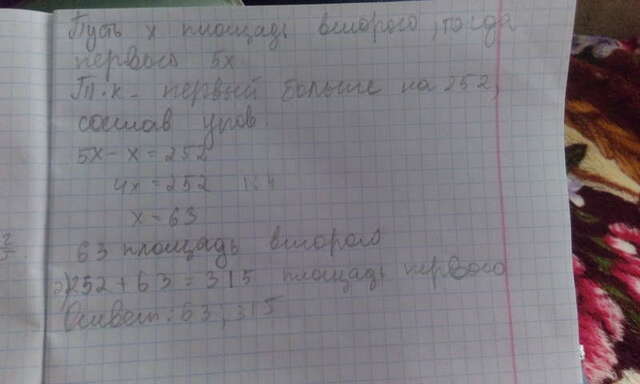 Пусть x площадь второго, тогда
первого 5x
Т.к. первый больше на 252,
состав уров.
5x - x = 252
4x = 252 |:4
x = 63
63 площадь второго
2) 252 + 63 = 315 площадь первого
Ответ: 63, 315